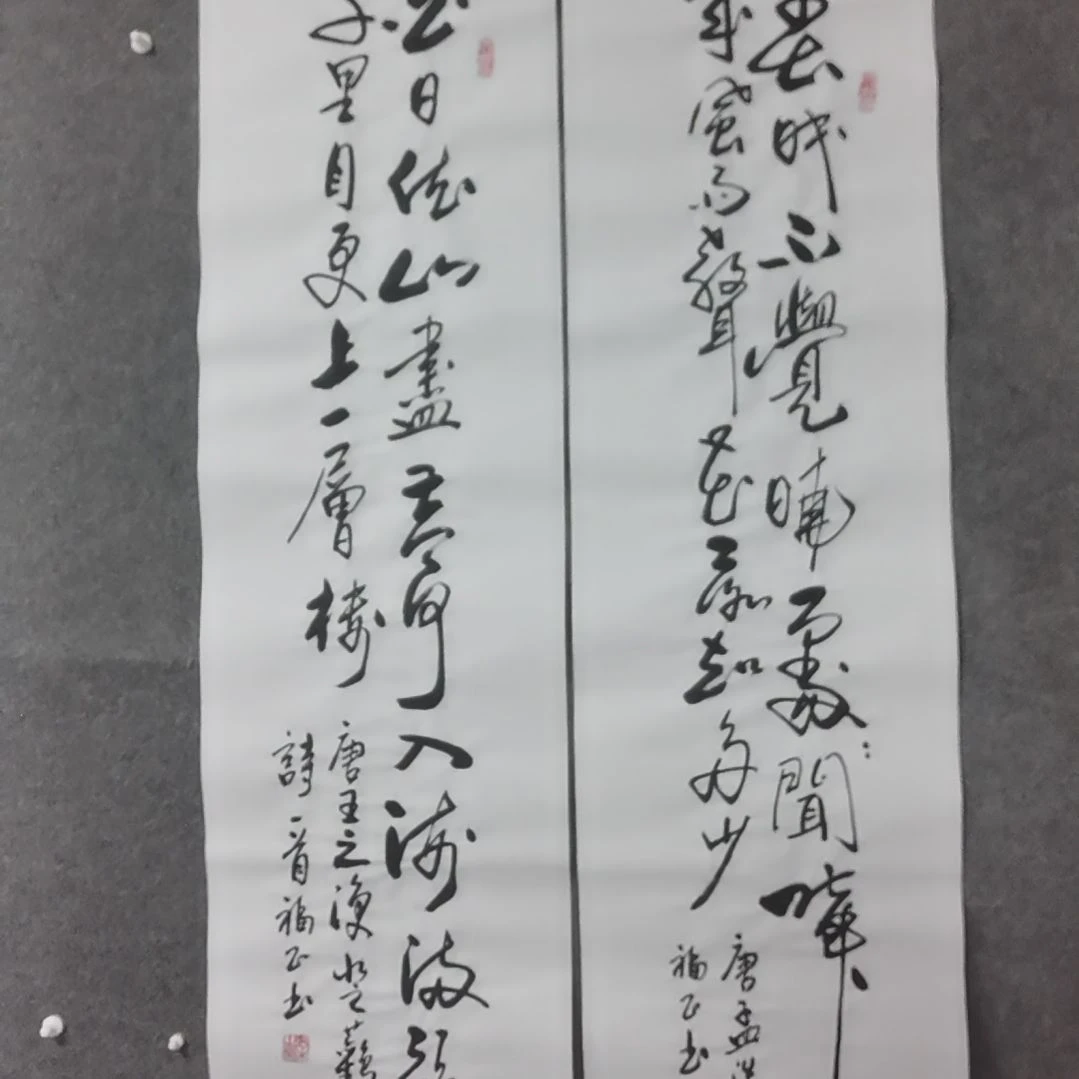 春眠不覺曉處:聞啼
夜風雨聲花落知多少
唐孟浩
福正书
白日依山盡黄河入海流欲
千里目更上一層樓
唐王之渙登鸛
詩一首福正书